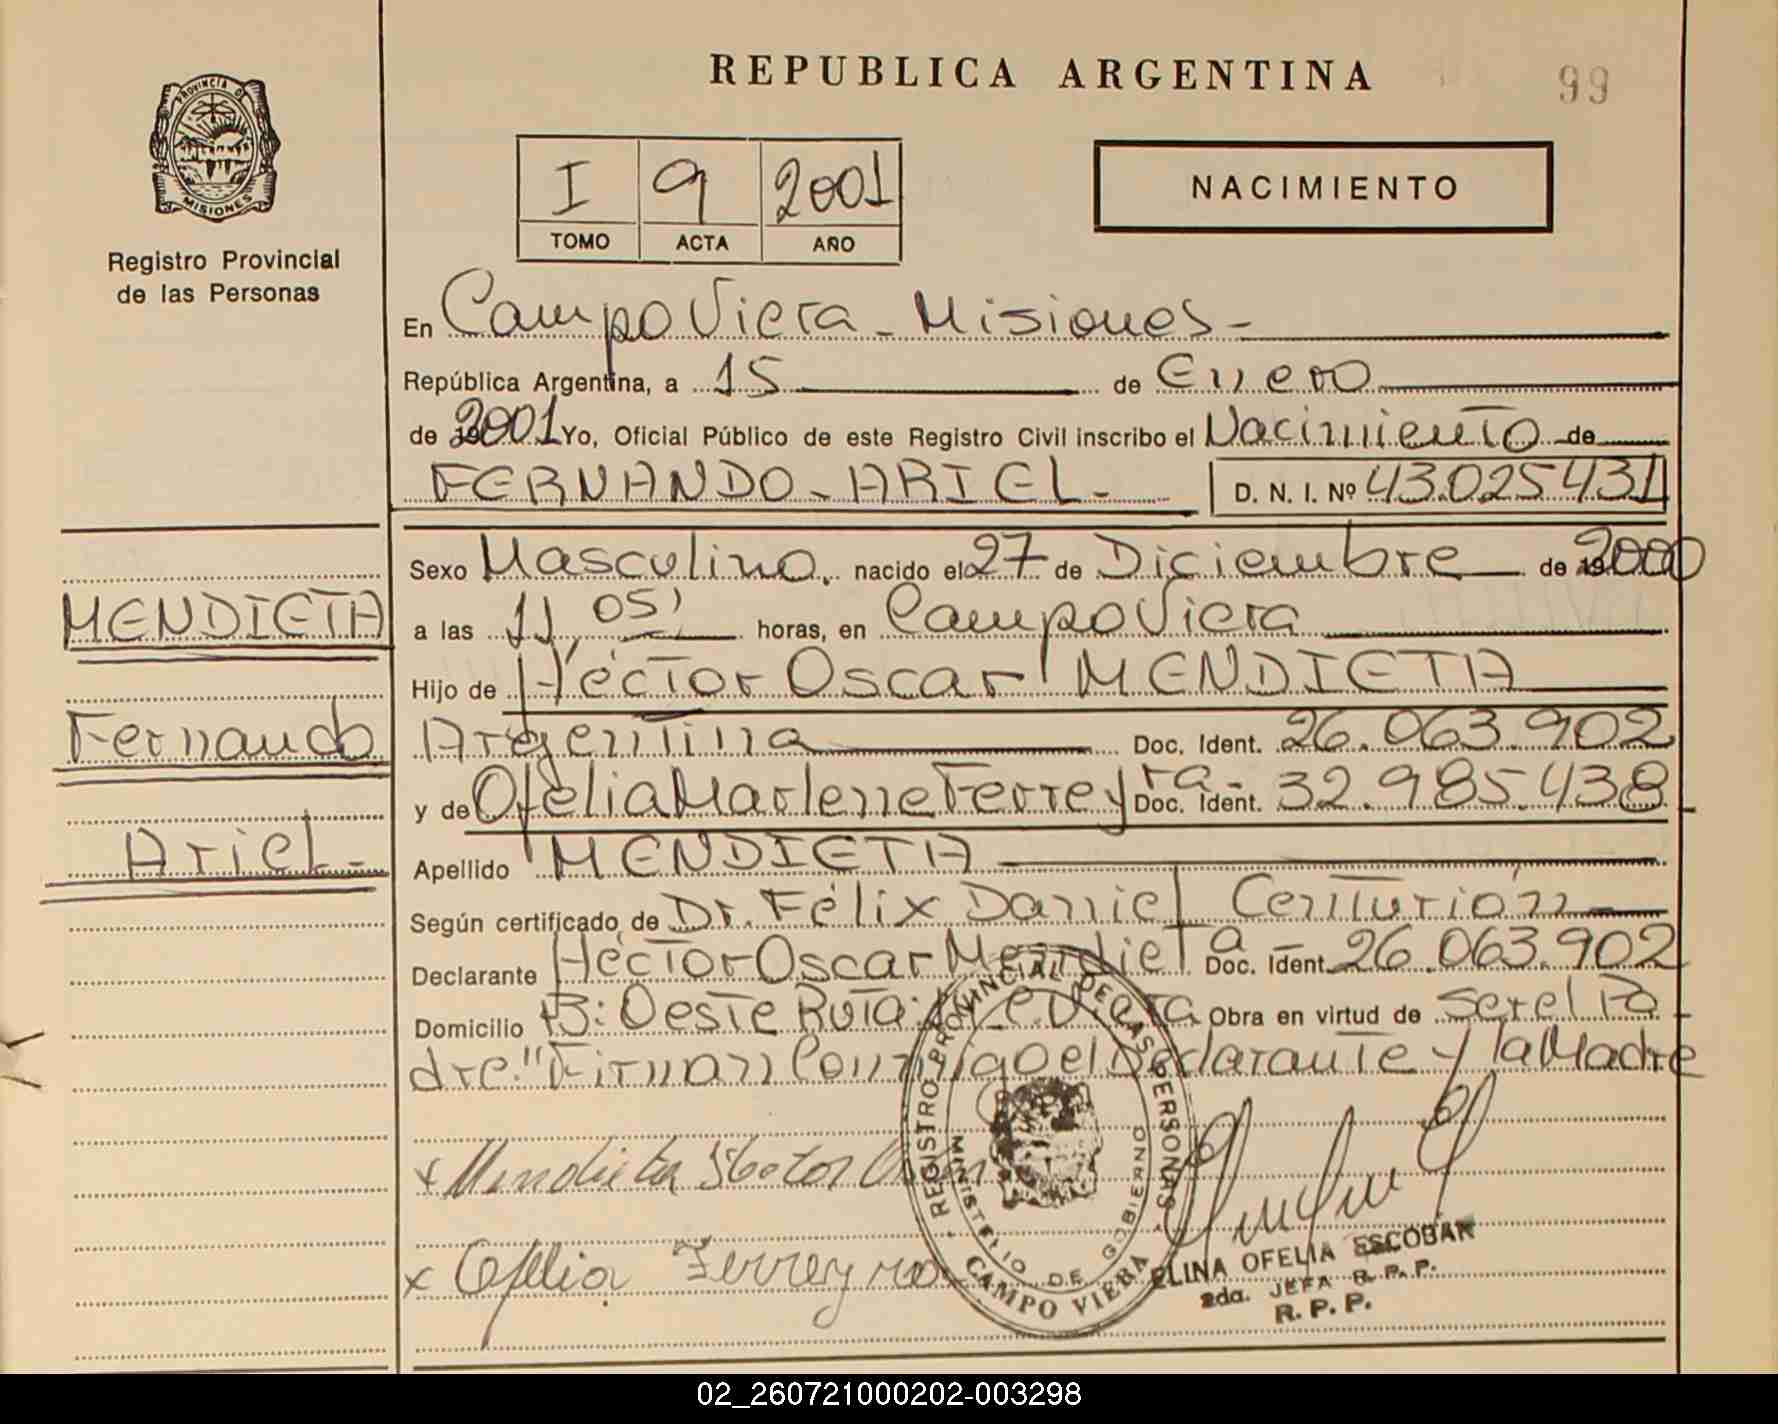 REPUBLICA ARGENTINA
99
PROVINCIA DE MISIONES
Registro Provincial
de las Personas
I 9 2001
TOMO ACTA AÑO
NACIMIENTO
En Campo Viera - Misiones -
República Argentina, a 15 de Enero
de 2001 Yo, Oficial Público de este Registro Civil inscribo el Nacimiento de
FERNANDO - ARIEL - D. N. I. Nº 43.025431
Sexo Masculino, nacido el 27 de Diciembre de 2000
MENDIETA
a las 11,05' horas, en Campo Viera
Hijo de Héctor Oscar MENDIETA
Fernando
Argentina Doc. Ident. 26.063.902
y de Ofelia Marlene Ferreyra - Doc. Ident. 32.985.438 -
Ariel -
Apellido MENDIETA
Según certificado de Dr. Félix Daniel Centurión
Declarante Héctor Oscar Mendieta - Doc. Ident. 26.063.902
Domicilio B: Oeste Ruta: C. Viera Obra en virtud de ser el Pa
dre." Firman Conmigo el Declarante y la Madre
x Mendieta Hector
x Ofelia Ferreyra
REGISTRO PROVINCIAL DE LAS PERSONAS
MINISTERIO DE GOBIERNO
CAMPO VIERA
ELINA OFELIA ESCOBAR
2da. JEFA R. P. P.
R. P. P.
02_260721000202-003298